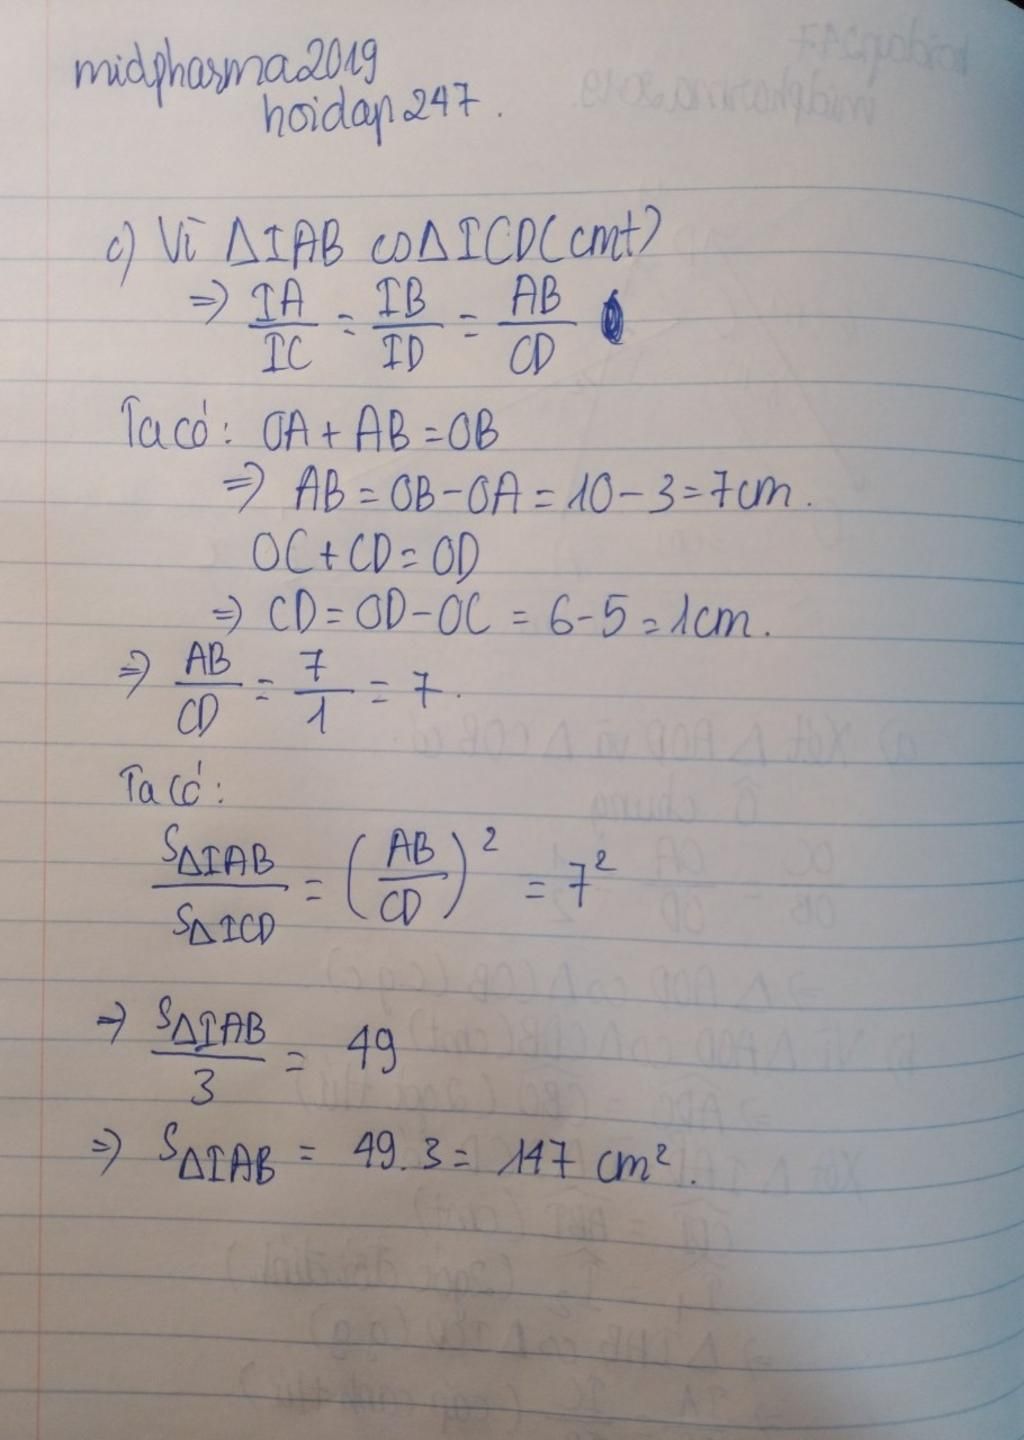 midpharma2019
hoidap247.
c) Vì ΔIAB ∽ ΔICD (cmt)
=> IA/IC = IB/ID = AB/CD
Ta có: OA + AB = OB
=> AB = OB - OA = 10 - 3 = 7cm.
OC + CD = OD
=> CD = OD - OC = 6 - 5 = 1cm.
=> AB/CD = 7/1 = 7.
Ta có:
SΔIAB/SΔICD = (AB/CD)² = 7²
=> SΔIAB/3 = 49
=> SΔIAB = 49.3 = 147 cm².